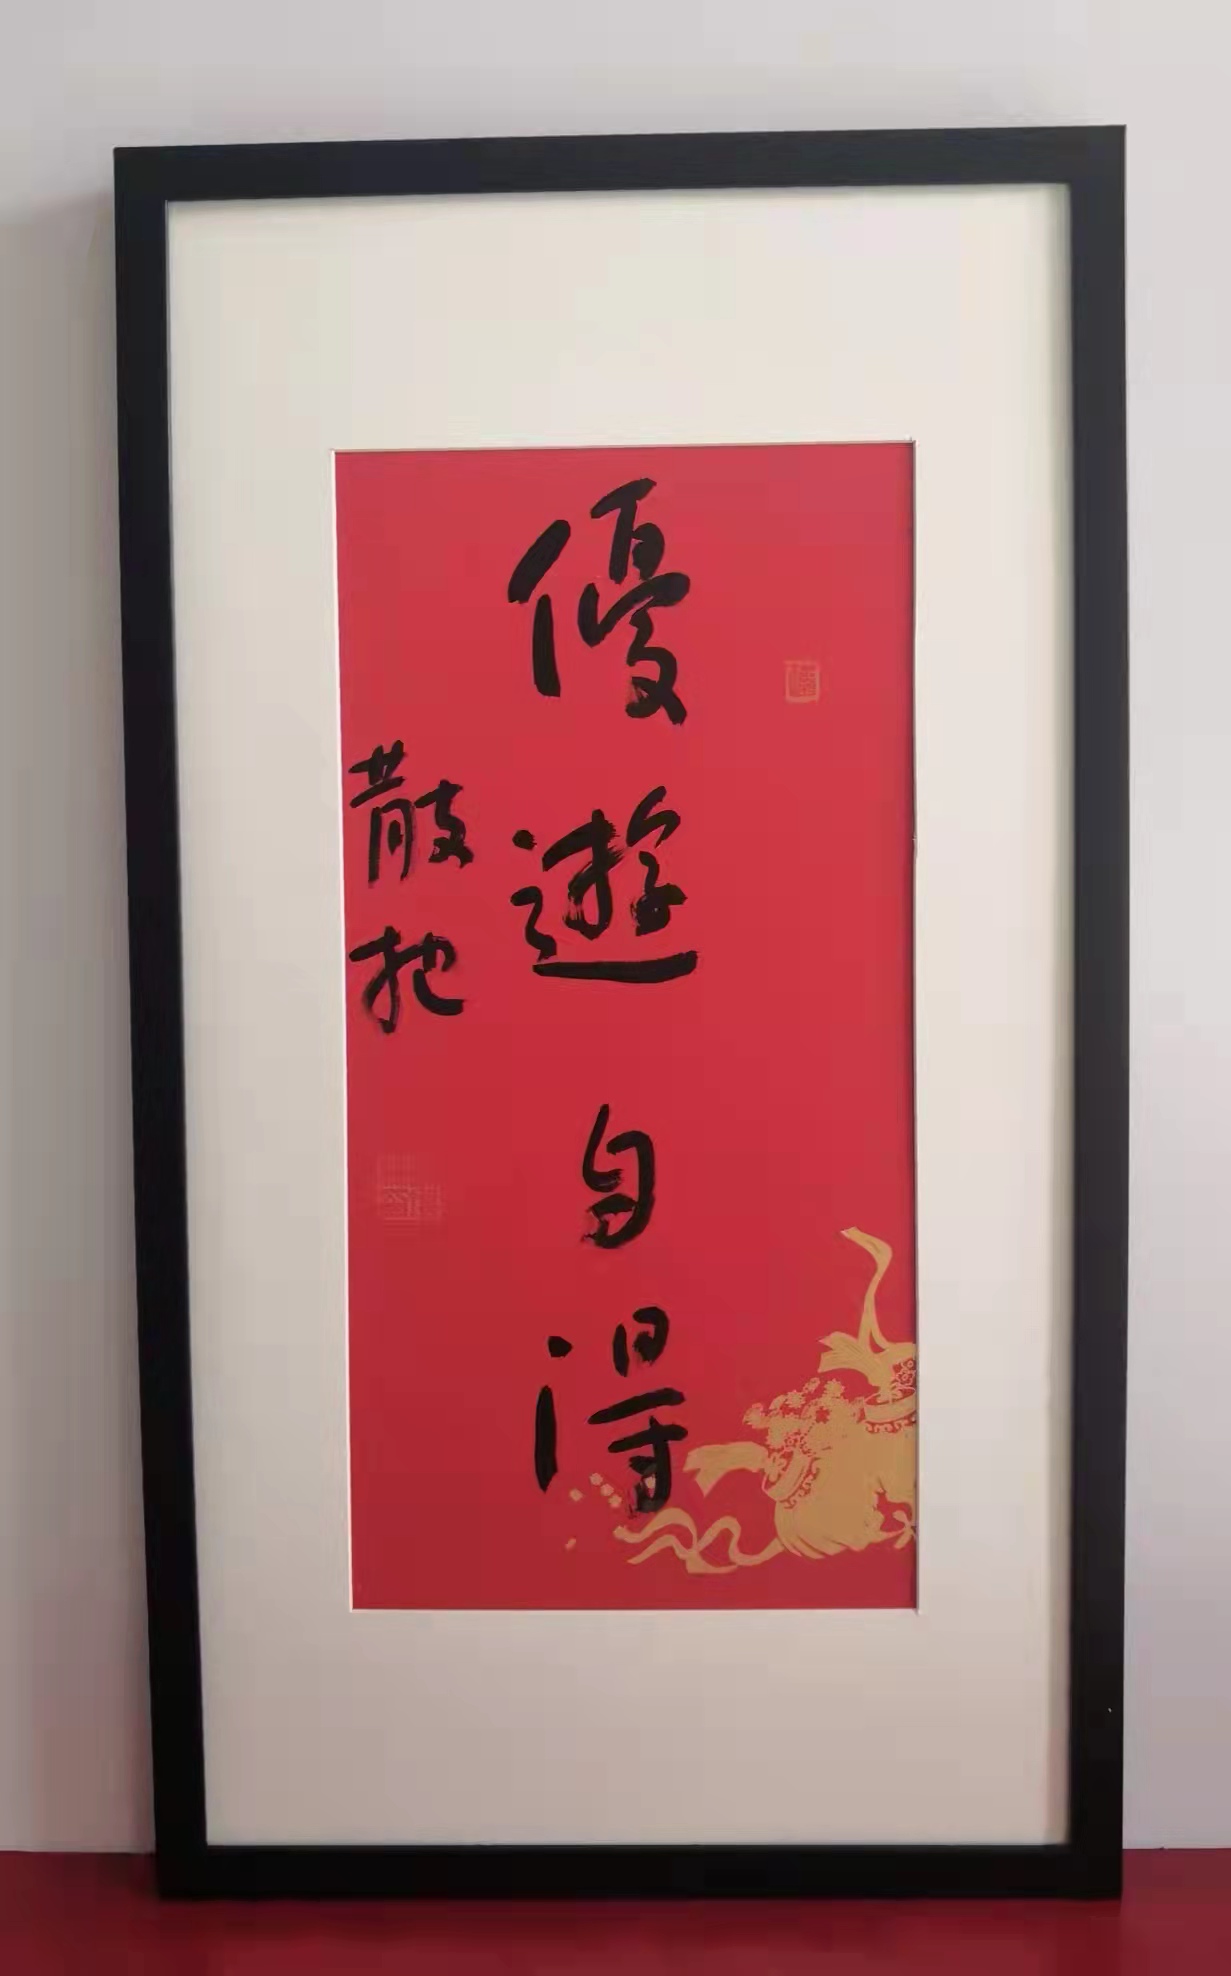 優遊自得
散抱